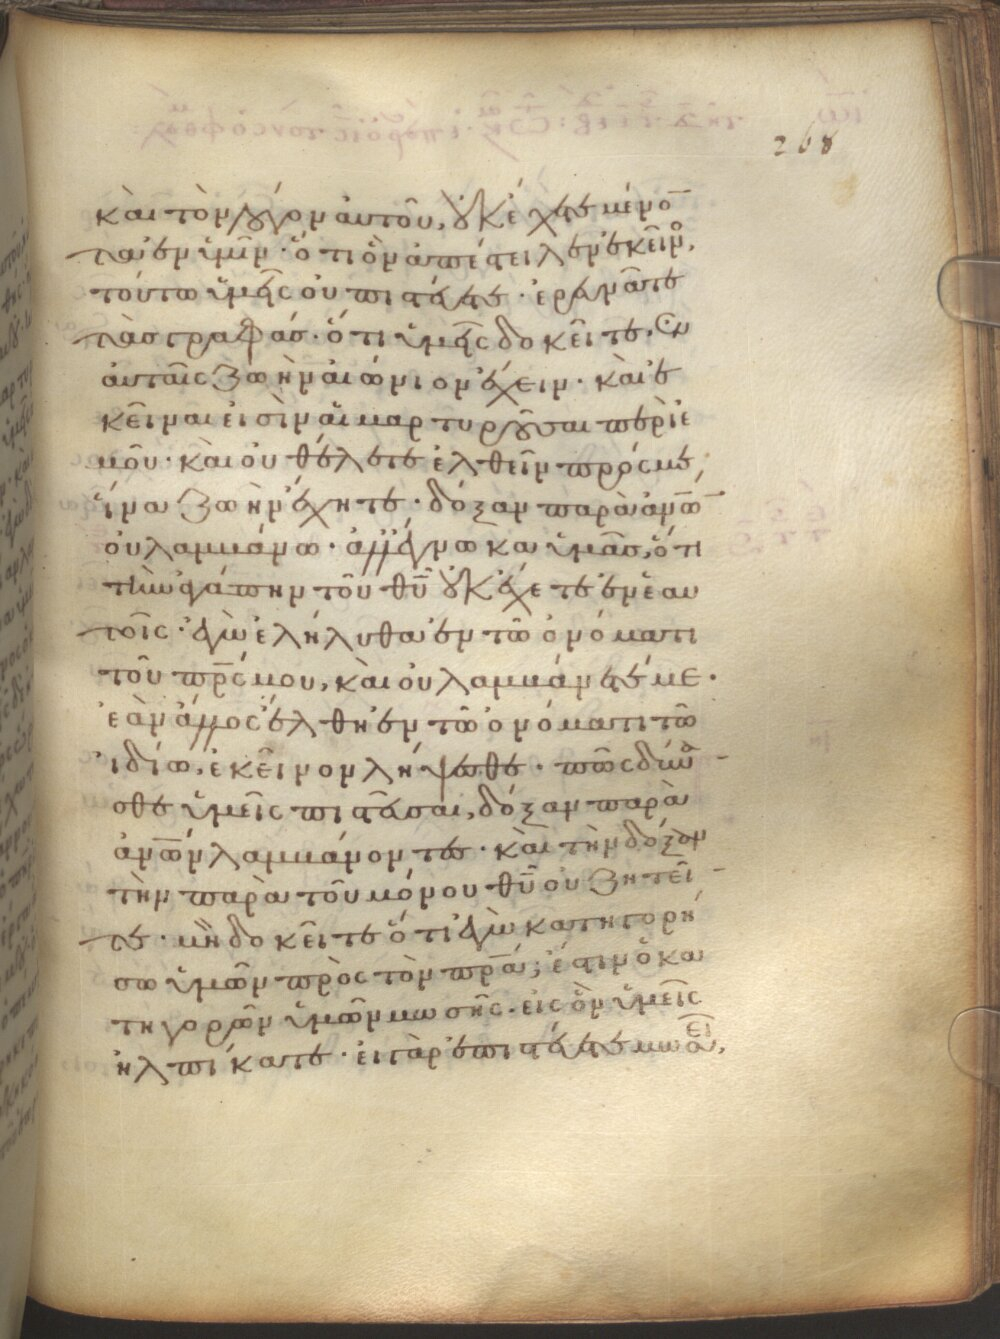 268
καὶ τὸν λόγον αὐτοῦ, οὐκ ἔχετε μένο̅
τα ἐν ὑμῖν· ὅτι ὃν ἀπέστειλεν ἐκεῖνος,
τούτω ὑμεῖς οὐ πιστεύετε· ἐρευνᾶτε
τὰς γραφάς· ὅτι ὑμεῖς δοκεῖτε ἐν
αὐταῖς ζωὴν αἰώνιον ἔχειν· καὶ ἐ
κεῖναι εἰσὶν αἱ μαρτυροῦσαι περὶ ἐ
μοῦ· καὶ οὐ θέλετε ἐλθεῖν πρός με,
ἵνα ζωὴν ἔχητε· δόξαν παρὰ ἀνω̅
οὐ λαμβάνω· ἀλλ' ἔγνωκα ὑμᾶς, ὅτι
τὴν ἀγάπην τοῦ θυ̅ οὐκ ἔχετε ἐν ἑαυ
τοῖς· ἐγὼ ἐλήλυθα ἐν τῶ ὀνόματι
τοῦ πρ̅ς μου, καὶ οὐ λαμβάνετέ με·
ἐὰν ἄλλος ἔλθη ἐν τῶ ὀνόματι τῶ
ἰδίω, ἐκεῖνον λήψεσθε· πῶς δύνα
σθε ὑμεῖς πιστεῦσαι, δόξαν παρὰ
ἀνω̅ν λαμβάνοντες· καὶ τὴν δόξαν
τὴν παρὰ τοῦ μόνου θυ̅ οὐ ζητεῖ
τε· μὴ δοκεῖτε ὅτι ἐγὼ κατηγορή
σω ὑμῶν πρὸς τὸν πρ̅α; ἔστιν ὁ κα
τηγορῶν ὑμῶν μωσῆς· εἰς ὃν ὑμεῖς
ἠλπίκατε· εἰ γὰρ ἐπιστεύετε μωσεῖ,